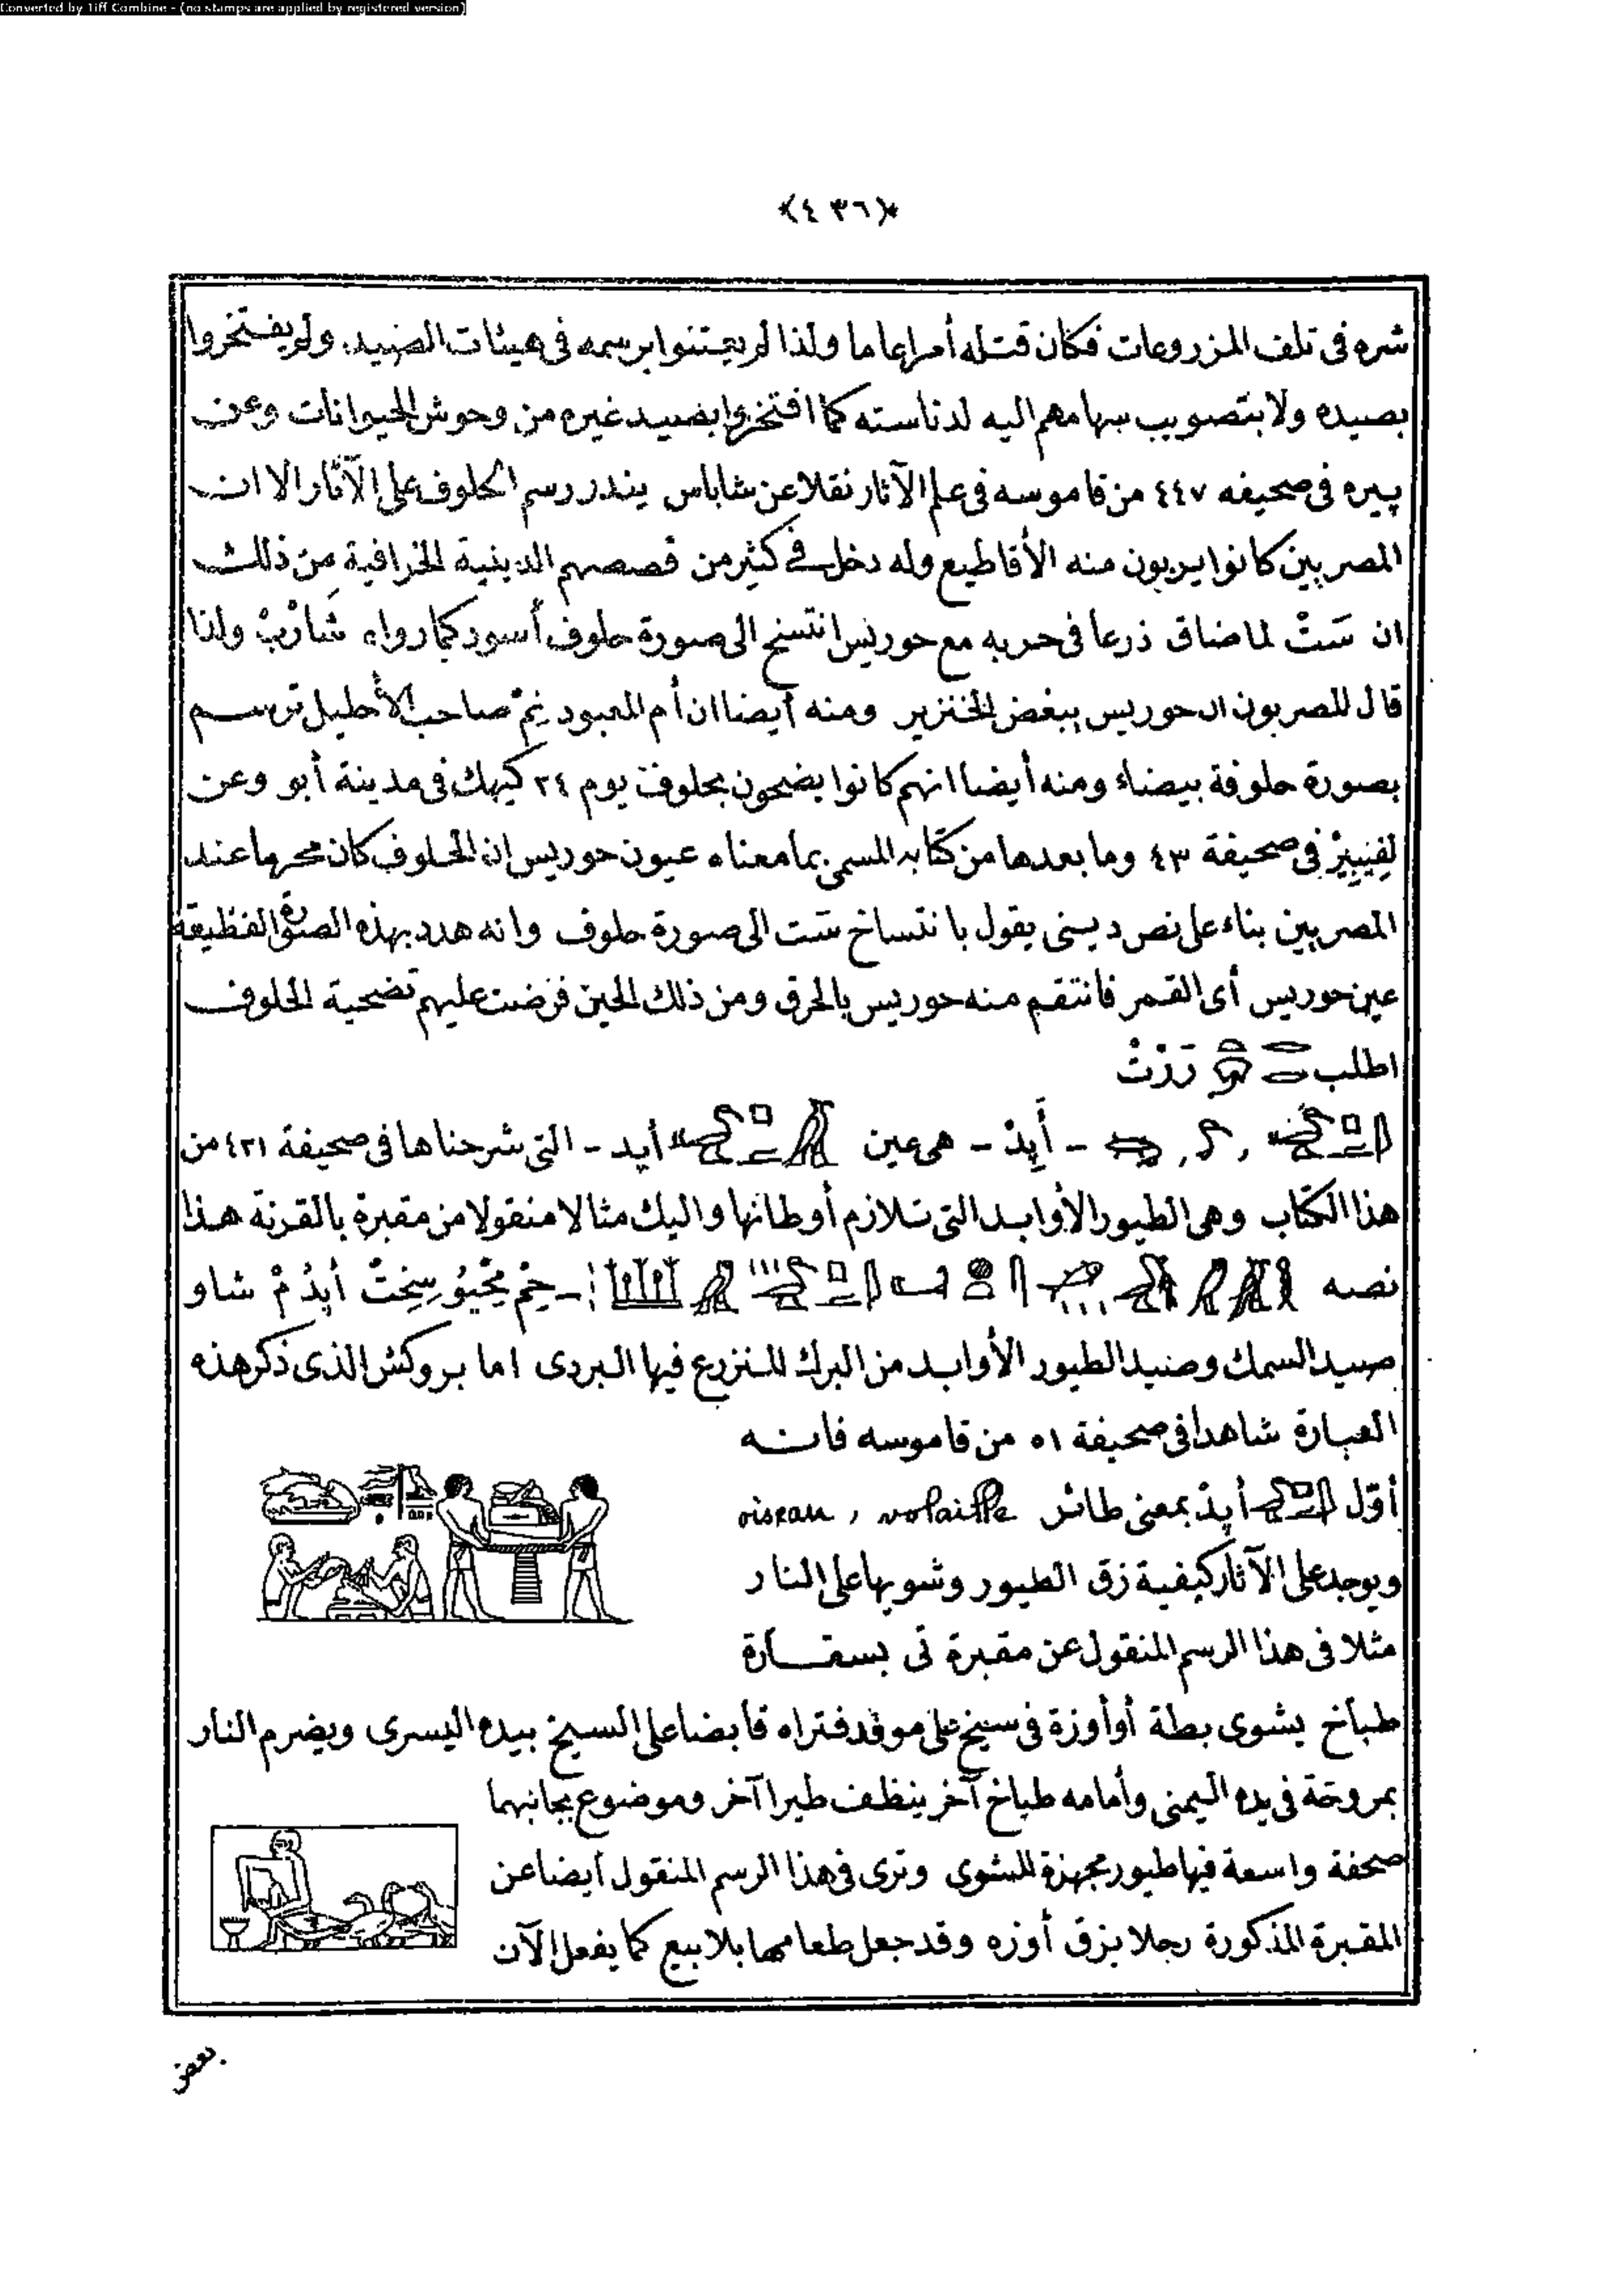 Converted by Tiff Combine - (no stamps are applied by registered version)
﴿٤٣٦﴾
شره فى تلف المزروعات فكان قتله أمرا عاما ولذا لم يعتنوا برسمه فى هيئات الصيد. ولم يفتخروا
بصيده ولا بتصويب سهامهم اليه لدناسته كما افتخروا بصيد غيره من وحوش الحيوانات وعن
پيره فى صحيفه ٤٤٧ من قاموسه فى علم الآثار نقلا عن شاباس يندر رسم الحلوف على الآثار الا ان
المصريين كانوا يربون منه الأقاطيع وله دخل فى كثير من قصصهم الدينية الخرافية من ذلك
ان سَتْ لما ضاق ذرعا فى حربه مع حوريس انتسخ الى صورة حلوف أسود كما رواه شَارْبْ ولذا
قال المصريون ان حوريس يبغض الخنزير ومنه أيضا ان أم المعبود نِمْ صاحب الأحليل ترسم
بصورة حلوفة بيضاء ومنه أيضا انهم كانوا يضحون بحلوف يوم ٢٤ كيهك فى مدينة أبو وعن
لِفِيبِيرْ فى صحيفة ٤٣ وما بعدها من كتابه المسمى بما معناه عيون حوريس ان الحلوف كان محرما عند
المصريين بناء على نص دينى يقول بانتساخ ست الى صورة حلوف وانه هدد بهذه الصورة الفظيعة
عين حوريس أى القمر فانتقم منه حوريس بالحرق ومن ذلك الحين فرضت عليهم تضحية الحلوف
اطلب رَرْتْ
- أَپِدْ - هى عين أپد - التى شرحناها فى صحيفة ٤٣١ من
هذا الكتاب وهى الطيور الأوابد التى تلازم أوطانها واليك مثالا منقولا من مقبرة بالقرنة هذا
نصه - سِخِتْ أپِدُ مْ شاو
صيد السمك وصيد الطيور الأوابد من البرك المنزرع فيها البردى اما بروكش الذى ذكر هذه
العبارة شاهدا فى صحيفة ٥١ من قاموسه فانه
أوّل أپِدْ بمعنى طائر oiseau, volaille
ويوجد على الآثار كيفية زق الطيور وشويها على النار
مثلا فى هذا الرسم المنقول عن مقبرة تى بسقارة
طباخ يشوى بطة أو أوزة فى سيخ على موقد فتراه قابضا على السيخ بيده اليسرى ويضرم النار
بمروحة فى يده اليمنى وأمامه طباخ آخر ينظف طيرا آخر وموضوع بجانبهما
صحفة واسعة فيها طيور مجهزة للشوى وترى فى هذا الرسم المنقول أيضا عن
المقبرة المذكورة رجلا يزق أوزه وقد جعل طعامها بلابيع كما يفعل الآن
بعض